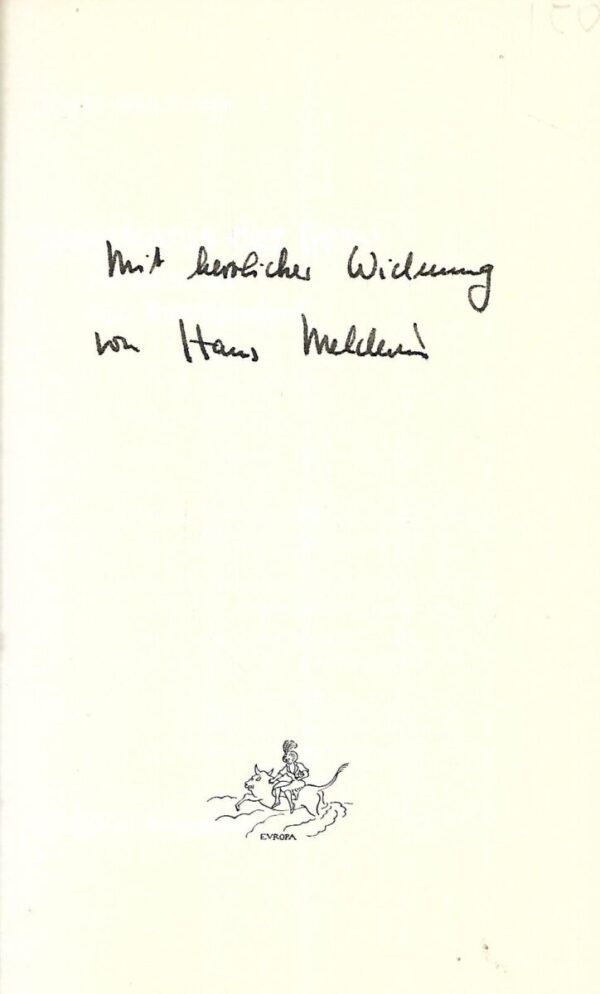 Mit herzlicher Widmung
von Hans
EVROPA